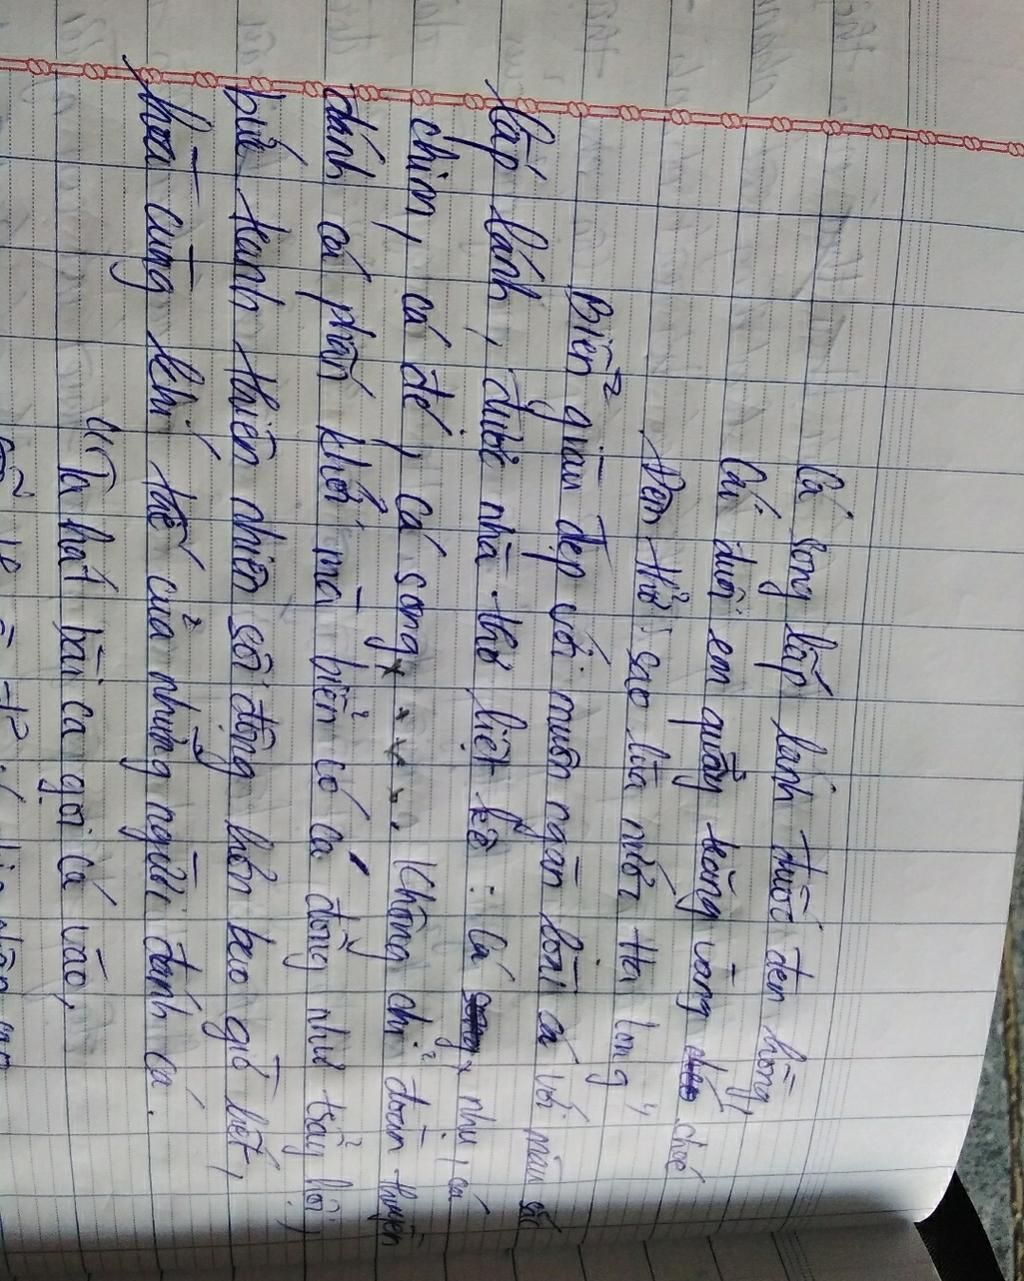 Cá song lấp lánh đuốc đen hồng,
Cái đuôi em quẫy trăng vàng chóe
Đêm thở: sao lùa nước Hạ Long"
Biển giàu đẹp với muôn ngàn loài cá với màu sắc
lấp lánh, được nhà thơ liệt kê: Cá nhụ, cá
chim, cá đé, cá song.... Không chỉ đoàn thuyền
đánh cá phấn khởi mà biển có cá đông như trẩy hội,
bức tranh thiên nhiên sôi động hơn bao giờ hết,
hòa cùng khí thế của những người đánh cá.
"Ta hát bài ca gọi cá vào,